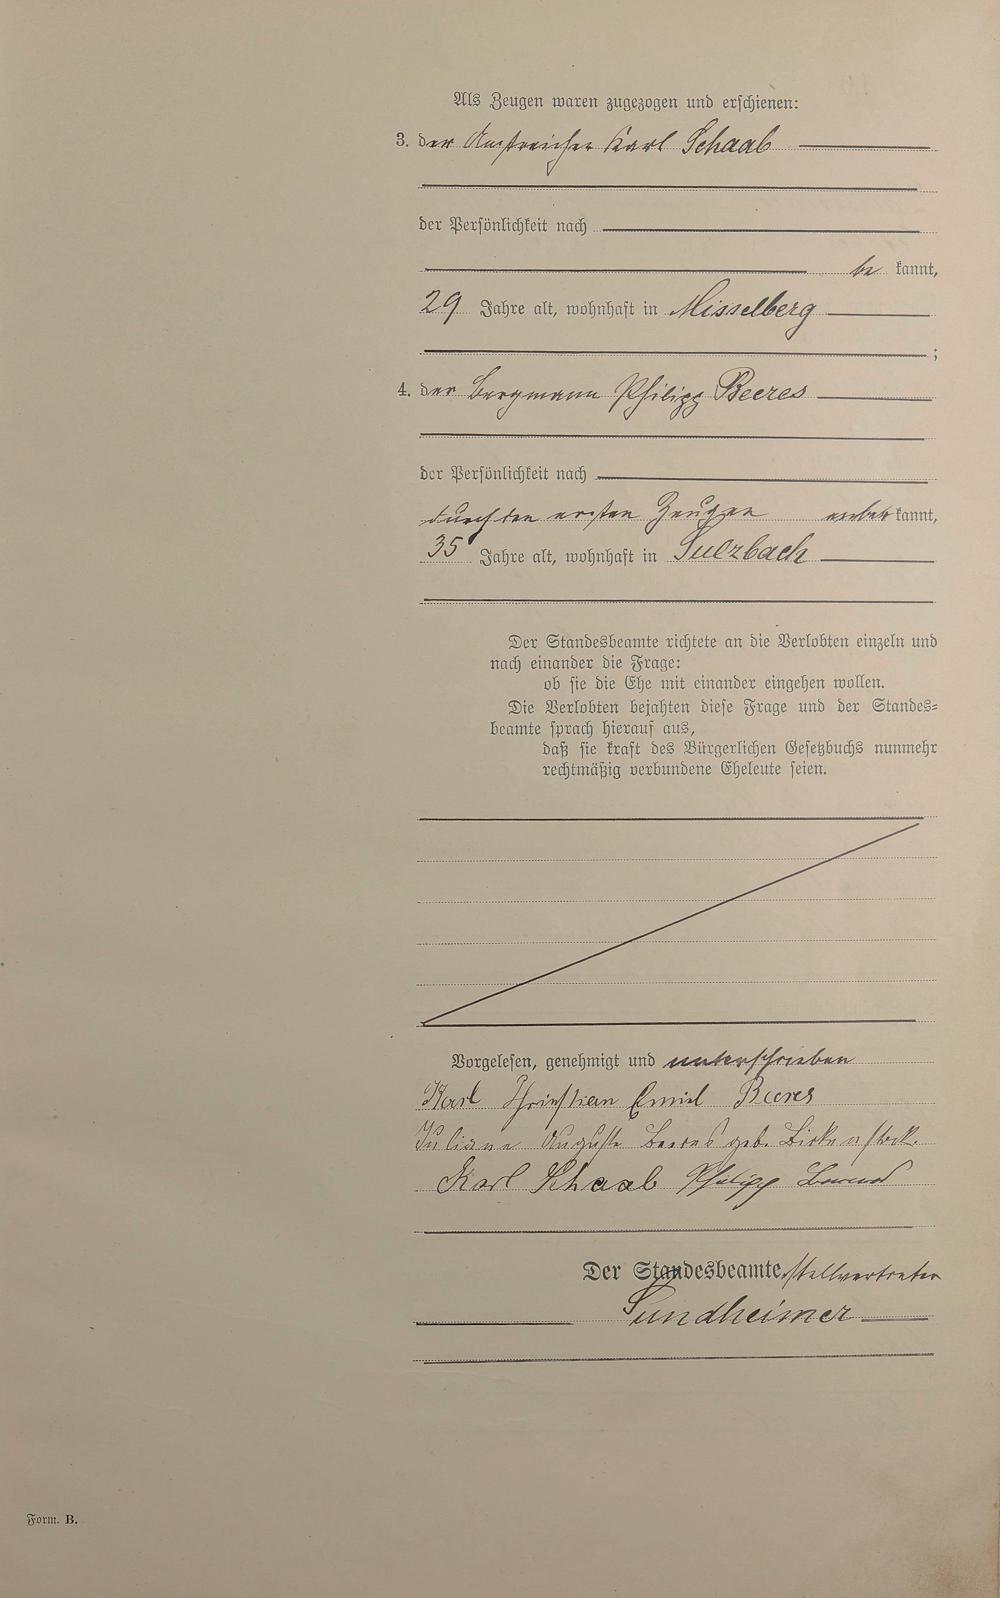 Als Zeugen waren zugezogen und erschienen:
3. der Anstreicher Karl Schaab
der Persönlichkeit nach
be kannt,
29 Jahre alt, wohnhaft in Misselberg
;
4. der Bergmann Philipp Beeres
der Persönlichkeit nach
durch den ersten Zeugen anerkannt,
35 Jahre alt, wohnhaft in Sulzbach
Der Standesbeamte richtete an die Verlobten einzeln und
nach einander die Frage:
ob sie die Ehe mit einander eingehen wollen.
Die Verlobten bejahten diese Frage und der Standes=
beamte sprach hierauf aus,
daß sie kraft des Bürgerlichen Gesetzbuchs nunmehr
rechtmäßig verbundene Eheleute seien.
Vorgelesen, genehmigt und unterschrieben
Karl Christian Emiel Beeres
Juliane Auguste Beeres geb. Birkenstock.
Karl Schaab Philipp Beeres
Der Standesbeamte stellvertreter
Sundheimer
Form. B.